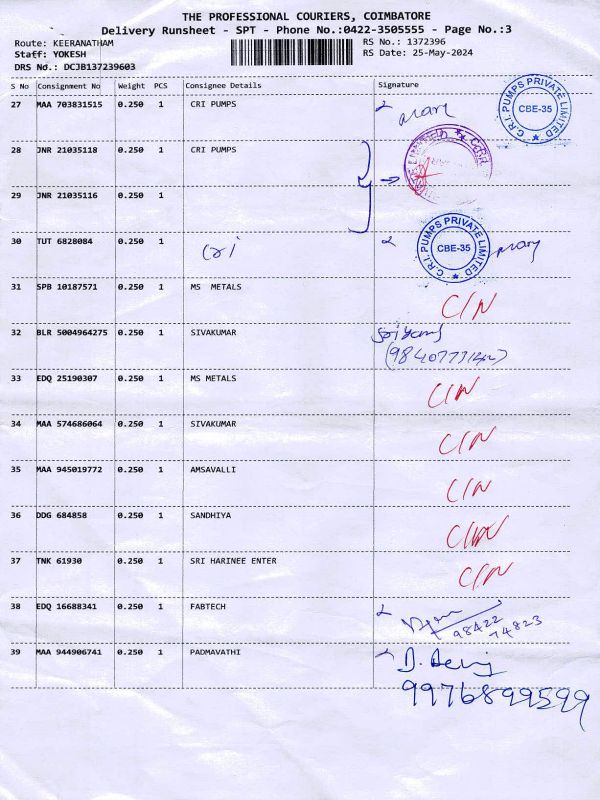 THE PROFESSIONAL COURIERS, COIMBATORE
Delivery Runsheet - SPT - Phone No.:0422-3505555 - Page No.:3
Route: KEERANATHAM RS No.: 1372396
Staff: YOKESH RS Date: 25-May-2024
DRS No.: DCJB137239603
S No Consignment No Weight PCS Consignee Details Signature
27 MAA 703831515 0.250 1 CRI PUMPS
C.R.I. PUMPS PRIVATE LIMITED CBE-35
28 JNR 21035118 0.250 1 CRI PUMPS
29 JNR 21035116 0.250 1
30 TUT 6828084 0.250 1 cri
C.R.I. PUMPS PRIVATE LIMITED CBE-35
31 SPB 10187571 0.250 1 MS METALS C/N
32 BLR 5004964275 0.250 1 SIVAKUMAR
33 EDQ 25190307 0.250 1 MS METALS C/N
34 MAA 574686064 0.250 1 SIVAKUMAR C/N
35 MAA 945019772 0.250 1 AMSAVALLI C/N
36 DDG 684858 0.250 1 SANDHIYA
37 TNK 61930 0.250 1 SRI HARINEE ENTER C/N
38 EDQ 16688341 0.250 1 FABTECH
98422
74823
39 MAA 944906741 0.250 1 PADMAVATHI
9976899599